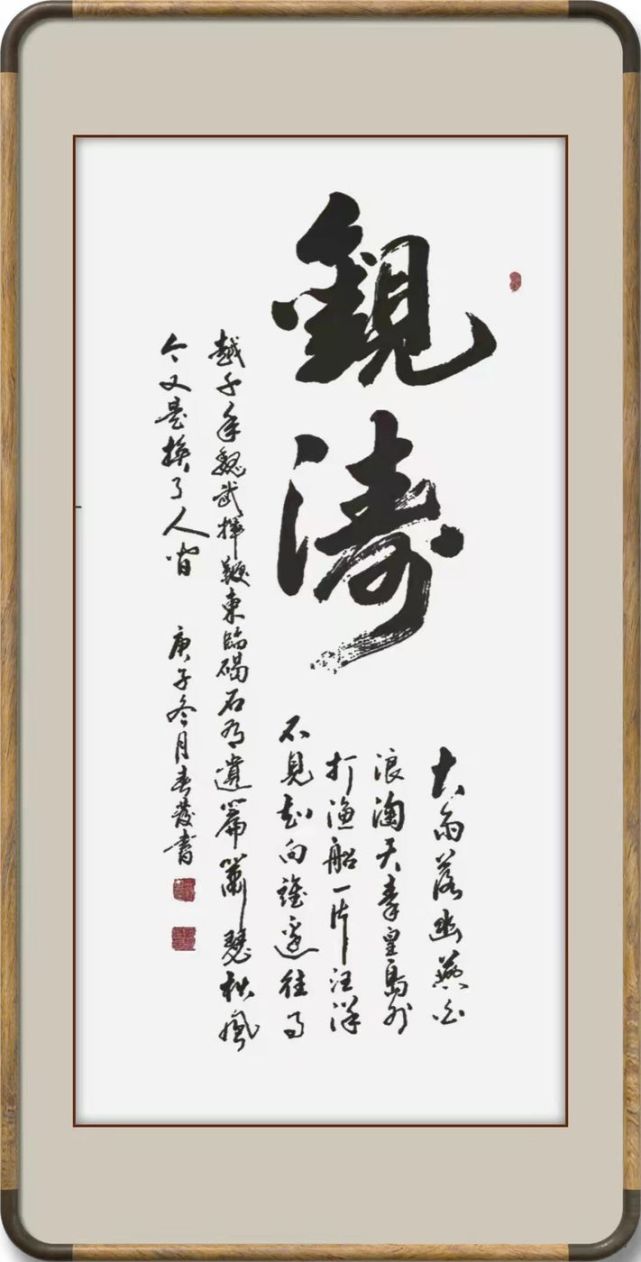 觀濤
大雨落幽燕白
浪淘天秦皇島外
打漁船一片汪洋
不見知向誰邊往事
越千年魏武揮鞭東臨碣石有遺篇蕭瑟秋風
今又是換了人间 庚子冬月春發書